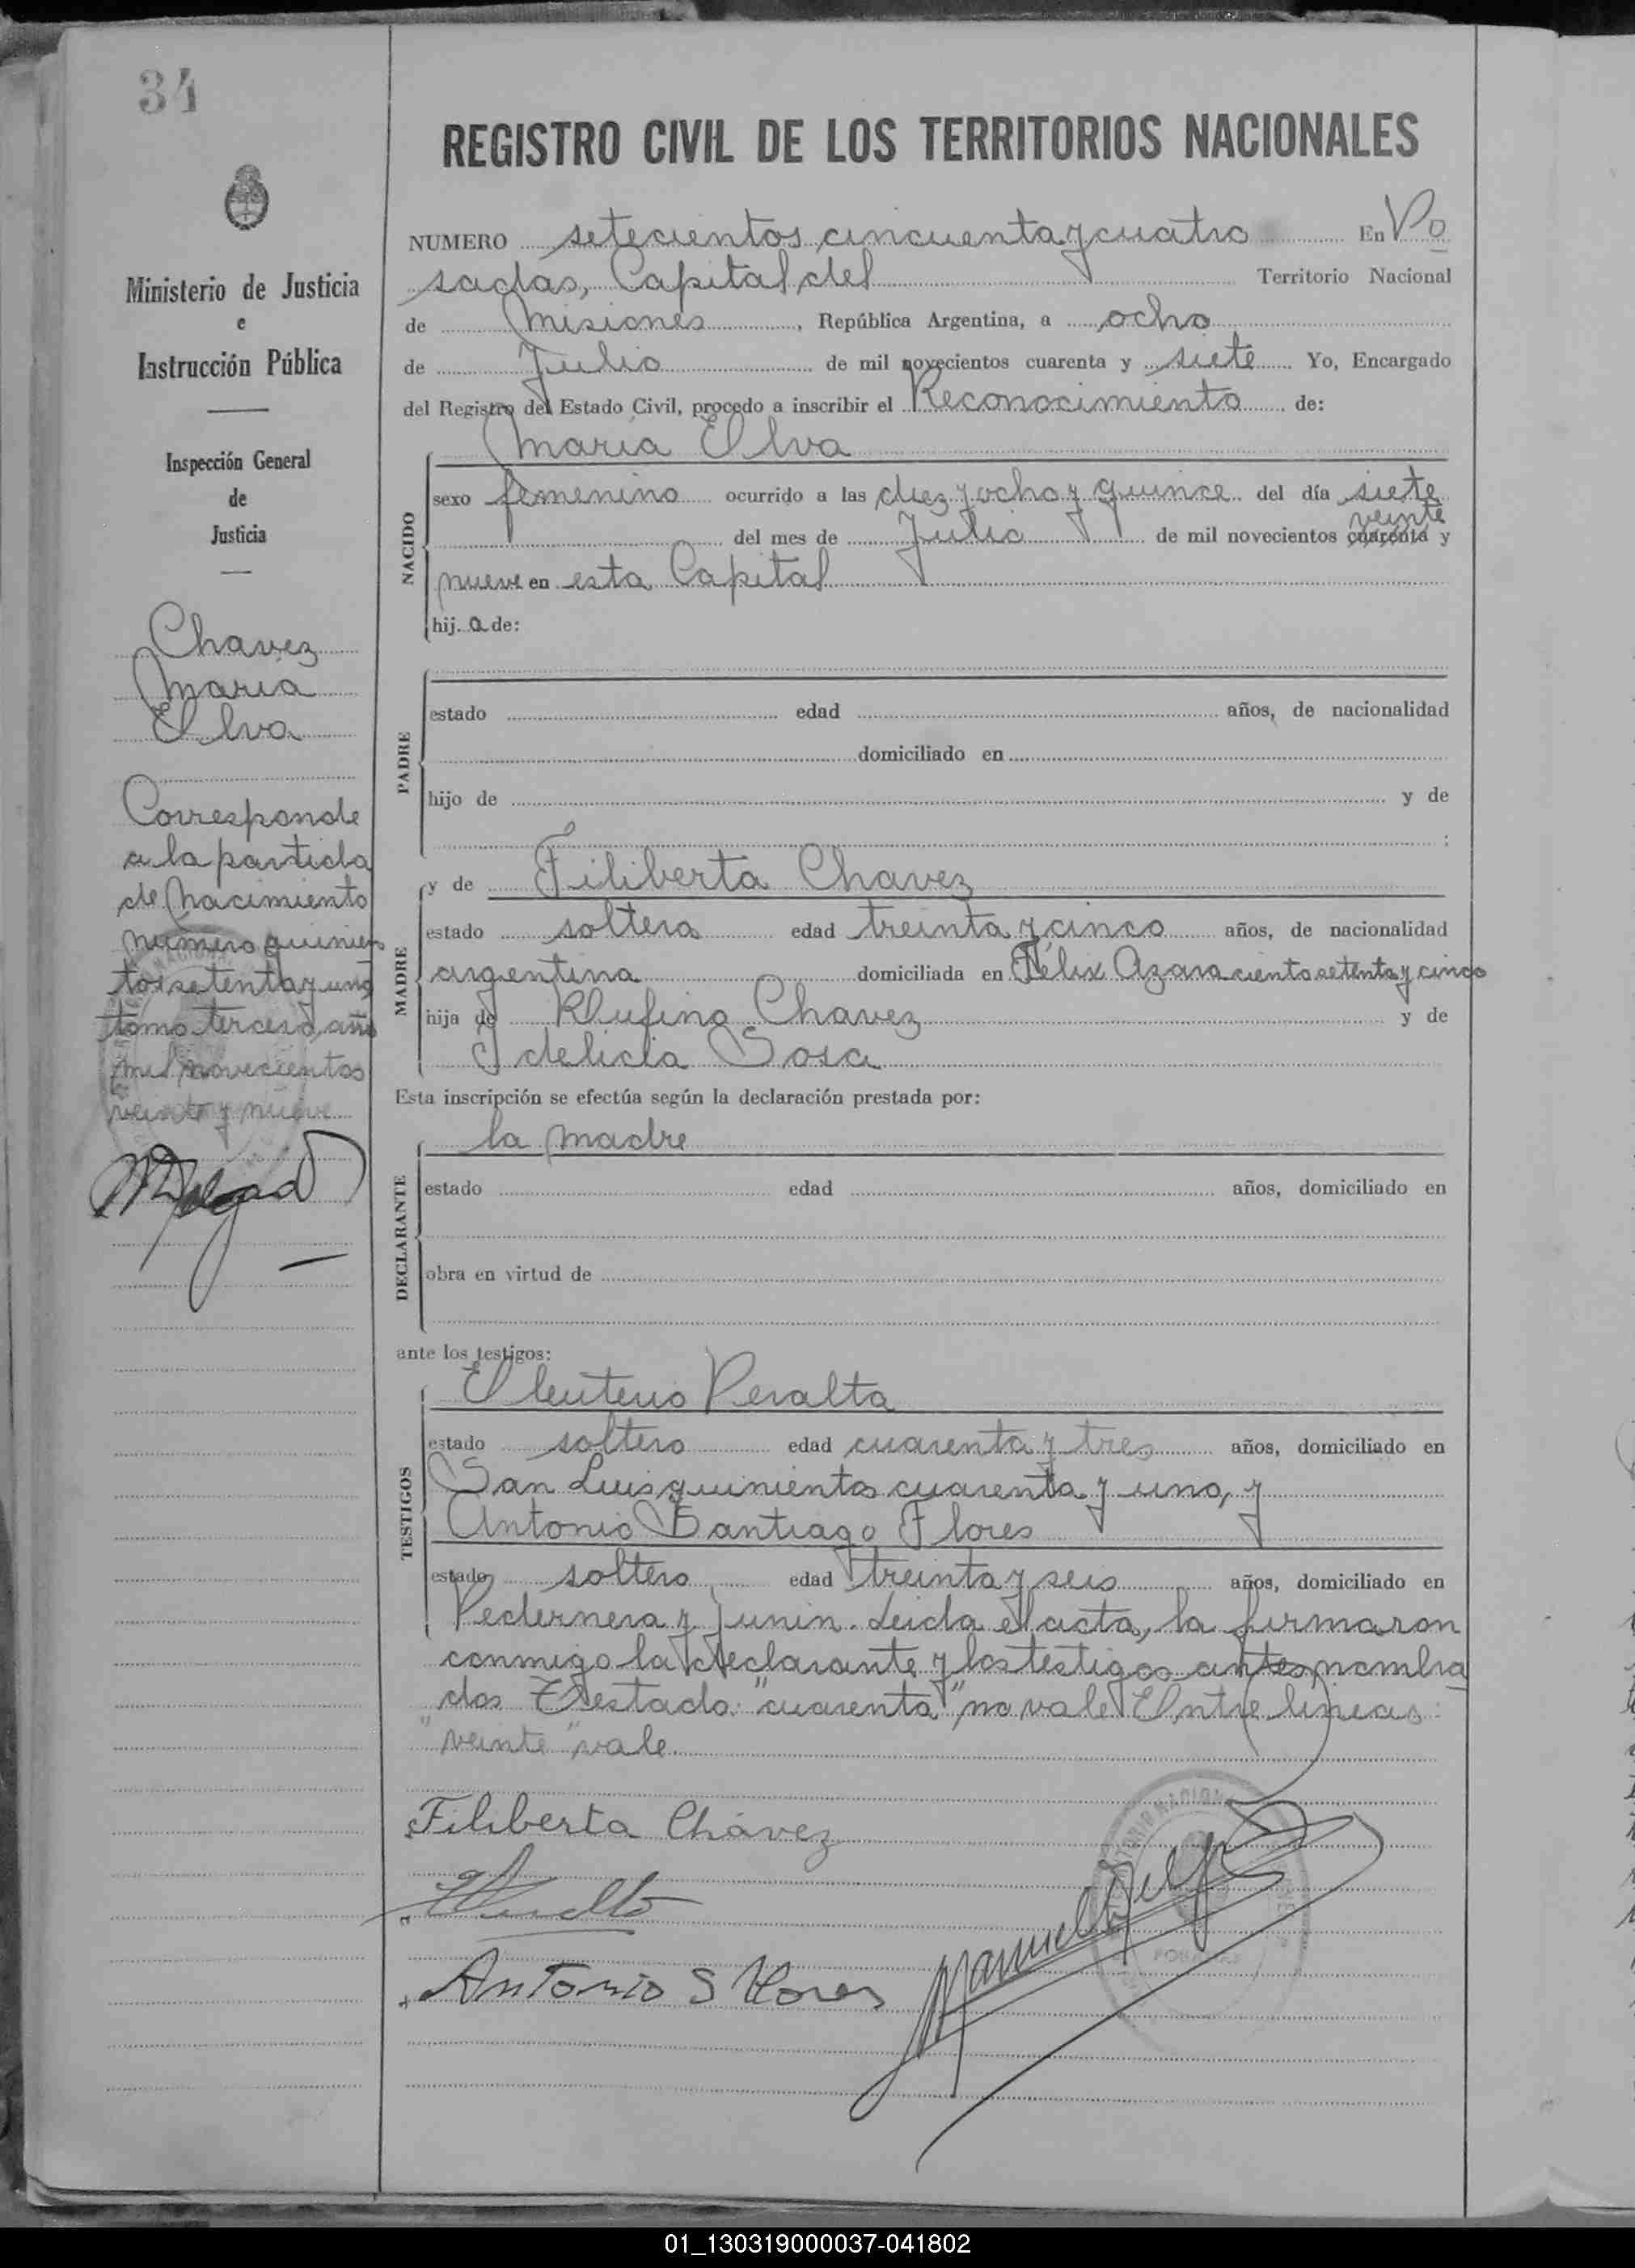 34
Ministerio de Justicia
e
Instrucción Pública
Inspección General
de
Justicia
Chavez
Maria
Elva
Corresponde
a la partida
de Nacimiento
número quinien
tos setenta y uno
tomo tercero, año
mil novecientos
veinte y nueve
REGISTRO CIVIL DE LOS TERRITORIOS NACIONALES
NUMERO setecientos cincuenta y cuatro En Po
sadas, Capital del Territorio Nacional
de Misiones, República Argentina, a ocho
de Julio de mil novecientos cuarenta y siete. Yo, Encargado
del Registro del Estado Civil, procedo a inscribir el Reconocimiento de:
Maria Elva
NACIDO
sexo femenino ocurrido a las diez y ocho y quince del día siete
veinte
del mes de Julio de mil novecientos cuarenta y
nueve en esta Capital
hij a de:
PADRE
estado edad años, de nacionalidad
domiciliado en
hijo de y de
;
MADRE
y de Filiberta Chavez
estado soltera edad treinta y cinco años, de nacionalidad
argentina domiciliada en Félix Azara ciento setenta y cinco
hija de Rufino Chavez y de
Idelicia Sosa
Esta inscripción se efectúa según la declaración prestada por:
la madre
DECLARANTE
estado edad años, domiciliado en
obra en virtud de
ante los testigos:
TESTIGOS
Eleuterio Peralta
estado soltero edad cuarenta y tres años, domiciliado en
San Luis quinientos cuarenta y uno, y
Antonio Santiago Flores
estado soltero edad treinta y seis años, domiciliado en
Pedernera y Junin. Leida el acta, la firmaron
conmigo la declarante y los testigos antes nombra
dos Testado: "cuarenta" no vale Entre lineas:
"veinte" vale.
Filiberta Chávez
Antonio S Flores
01_130319000037-041802